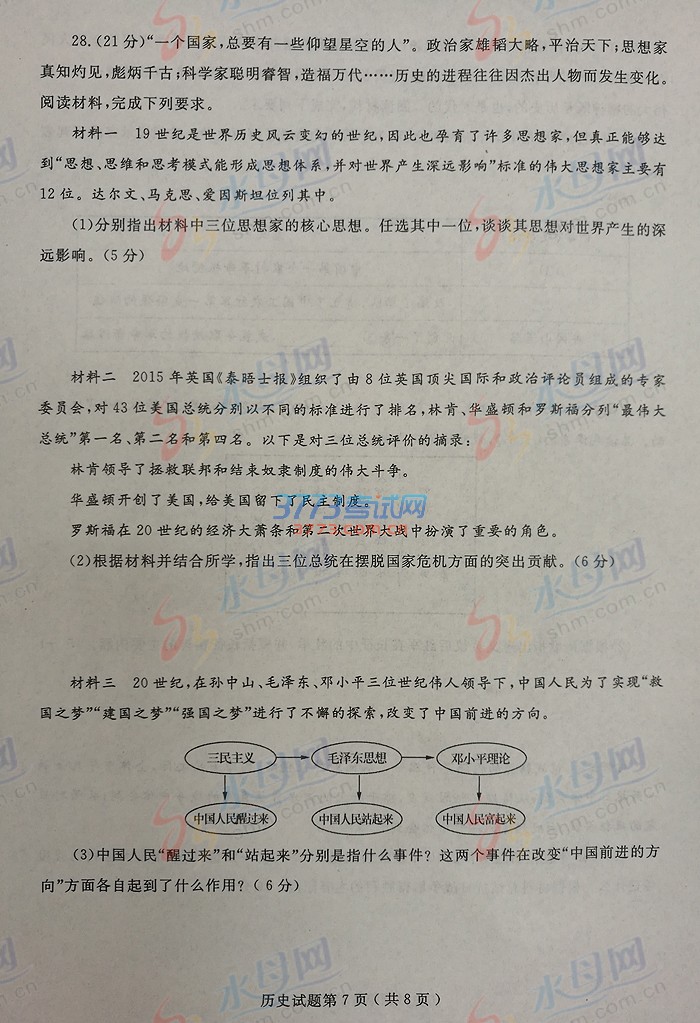 28.(21分)“一个国家,总要有一些仰望星空的人”。政治家雄韬大略,平治天下;思想家
真知灼见,彪炳千古;科学家聪明睿智,造福万代……历史的进程往往因杰出人物而发生变化。
阅读材料,完成下列要求。
材料一 19世纪是世界历史风云变幻的世纪,因此也孕育了许多思想家,但真正能够达
到“思想、思维和思考模式能形成思想体系,并对世界产生深远影响”标准的伟大思想家主要有
12位。达尔文、马克思、爱因斯坦位列其中。
(1)分别指出材料中三位思想家的核心思想。任选其中一位,谈谈其思想对世界产生的深
远影响。(5分)
材料二 2015年英国《泰晤士报》组织了由8位英国顶尖国际和政治评论员组成的专家
委员会,对43位美国总统分别以不同的标准进行了排名,林肯、华盛顿和罗斯福分列“最伟大
总统”第一名、第二名和第四名。以下是对三位总统评价的摘录:
林肯领导了拯救联邦和结束奴隶制度的伟大斗争。
华盛顿开创了美国,给美国留下了民主制度。
3773考试网
罗斯福在20世纪的经济大萧条和第二次世界大战中扮演了重要的角色。
(2)根据材料并结合所学,指出三位总统在摆脱国家危机方面的突出贡献。(6分)
材料三 20世纪,在孙中山、毛泽东、邓小平三位世纪伟人领导下,中国人民为了实现“救
国之梦”“建国之梦”“强国之梦”进行了不懈的探索,改变了中国前进的方向。
三民主义 毛泽东思想 邓小平理论
中国人民醒过来 中国人民站起来 中国人民富起来
(3)中国人民“醒过来”和“站起来”分别是指什么事件?这两个事件在改变“中国前进的方
向”方面各自起到了什么作用?(6分)
历史试题第7页(共8页)
水母网
shm.com.cn